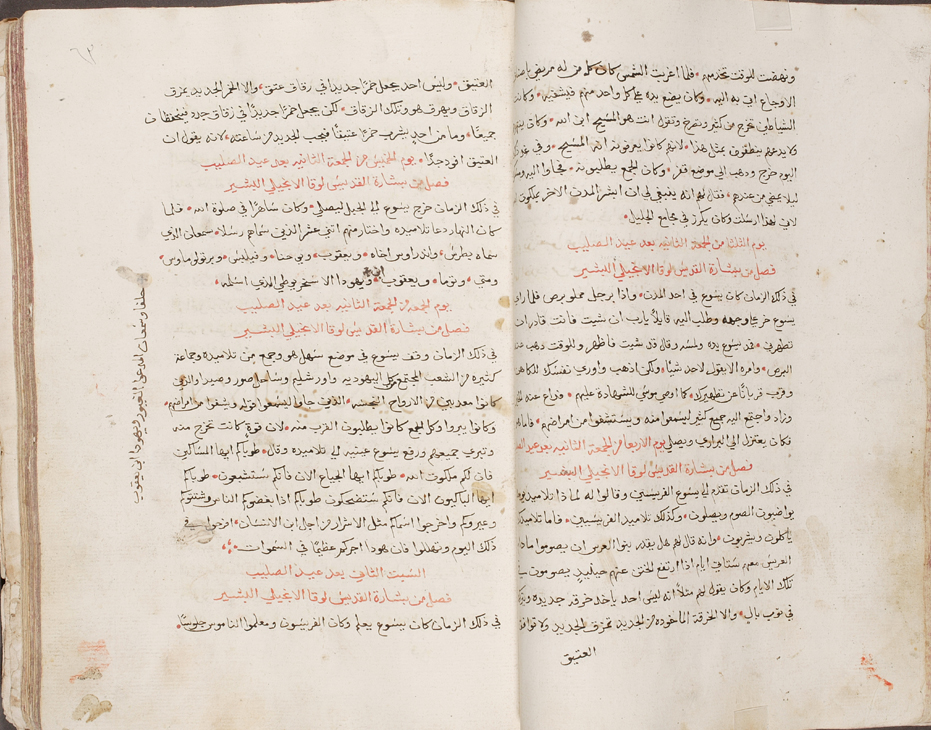 ونهضت للوقت تخدمهم فلما اغربت الشمس كان كل من له مريض
الاوجاع اتي به اليه وكان يضع يده على كل واحد منهم فيشفيه وكانت
الشياطين تخرج من كثير وتصرخ وتقول انت هو المسيح ابن الله وكان
ولا يدعهم ينطقون بمثل هذا لانهم كانوا يعرفونه انه المسيح وفي
اليوم خرج وذهب الي موضع قفر وكان الجمع يطلبونه فجاوا اليه
ليلا يمضي من عندهم فقال لهم انه ينبغي لي ان ابشر المدن الاخر بملكوت
لاني لهذا ارسلت وكان يكرز في مجامع الجليل
يوم الثلثا من الجمعة الثانيه بعد عيد الصليب
فصل من بشارة القديس لوقا الانجيلي البشير
في ذلك الزمان كان يسوع في احد المدن واذا برجل مملو برص فلما راي
يسوع خر علي وجهه وطلب اليه قايلاً يارب ان شيت فانت قادر ان
تطهرني فمد يسوع يده ولمسه وقال قد شيت فاطهر وللوقت ذهب عنه
البرص وامره الا يقول لاحد شيا ولكن اذهب واوري نفسك للكاهن
وقرب قربانًا عن تطهيرك كما اوصي موسي للشهادة عليهم فذاع عنه
وزاد واجتمع اليه جميع كثير ليسمعوا منه ويستشفوا من امراضهم فاما
فكان يعتزل الي البراري ويصلي يوم الاربعا من الجمعة الثانيه بعد عيد
فصل من بشارة القديس لوقا الانجيلي البشير
في ذلك الزمان تقدم الي يسوع الفريسيين وقالوا له لماذا تلاميذ يوحنا
يواضبون الصوم ويصلون وكذلك تلاميذ الفريسيين فاما تلاميذك
ياكلون ويشربون وانه قال لهم هل يقدر بنوا العرس ان يصوموا مادام
العريس معهم ستاتي ايام اذا ارتفع الختن عنهم حينيذٍ يصومون في
تلك الايام وكان يقول لهم مثلاً انه ليس احد ياخذ خرقه جديده
في ثوب بالٍ والا الخرقة الماخوذه من الجديد تخرق الجديد ولا توافق
العتيق
العتيق وليس احد يجعل خمرًا جديدًا في زقاق عتق والا الخمر الجديد يمزق
الزقاق ويهرق هو وتلك الزقاق لكن يجعل خمرًا جديدًا في زقاق جدد فينحفظان
جميعًا وما من احدٍ يشرب خمرًا عتيقًا فيحب الجديد من ساعته لانه يقول ان
العتيق اجود جدًا يوم الخميس من الجمعة الثانيه بعد عيد الصليب
فصل من بشارة القديس لوقا الانجيلي البشير
في ذلك الزمان خرج يسوع الي الجبل ليصلي وكان ساهرًا في صلوة الله فلما
كان النهار دعا تلاميذه واختار منهم اثني عشر الذين سماهم رسلا سمعان الذي
سماه بطرس واندراوس اخاه ويعقوب ويوحنا وفيلبس وبرثولوماوس
ومتي وتوما ويعقوب ويهودا الاسخريوطي الذي اسلمه
يوم الجمعة من الجمعة الثانيه بعد عيد الصليب
فصل من بشارة القديس لوقا الانجيلي البشير
في ذلك الزمان وقف يسوع في موضع سهل هو وجمع من تلاميذه وجماعة
كثيره من الشعب المجتمع كل اليهوديه واورشليم وساحل صور وصيدا والذين
كانوا معذبين من الارواح النجسه الذين جاوا ليسمعوا قوله ويشفوا من امراضهم
وكانوا يبروا وكل الجمع كانوا يطلبون القرب منه لان قوة كانت تخرج منه
وتبري جميعهم ورفع يسوع عينيه الي تلاميذه وقال طوباكم ايها المساكين
فان لكم ملكوت الله طوباكم ايها الجياع الان فانكم ستشبعون طوباكم
ايها الباكيون الان فانكم ستضحكون طوباكم اذا بغضوكم الناس وشتتوكم
وعيروكم واخرجوا اسمكم مثل الاشرار من اجل ابن الانسان افرحوا في
ذلك اليوم وتهللوا فان هوذا اجركم عظيمًا في السموات
السبت الثاني بعد عيد الصليب
فصل من بشارة القديس لوقا الانجيلي البشير
في ذلك الزمان كان يسوع يعلم وكان الفريسيون ومعلموا الناموس جلوسًا
حلفا وسمعان المدعوا الغيور ويهودا ابن يعقوب